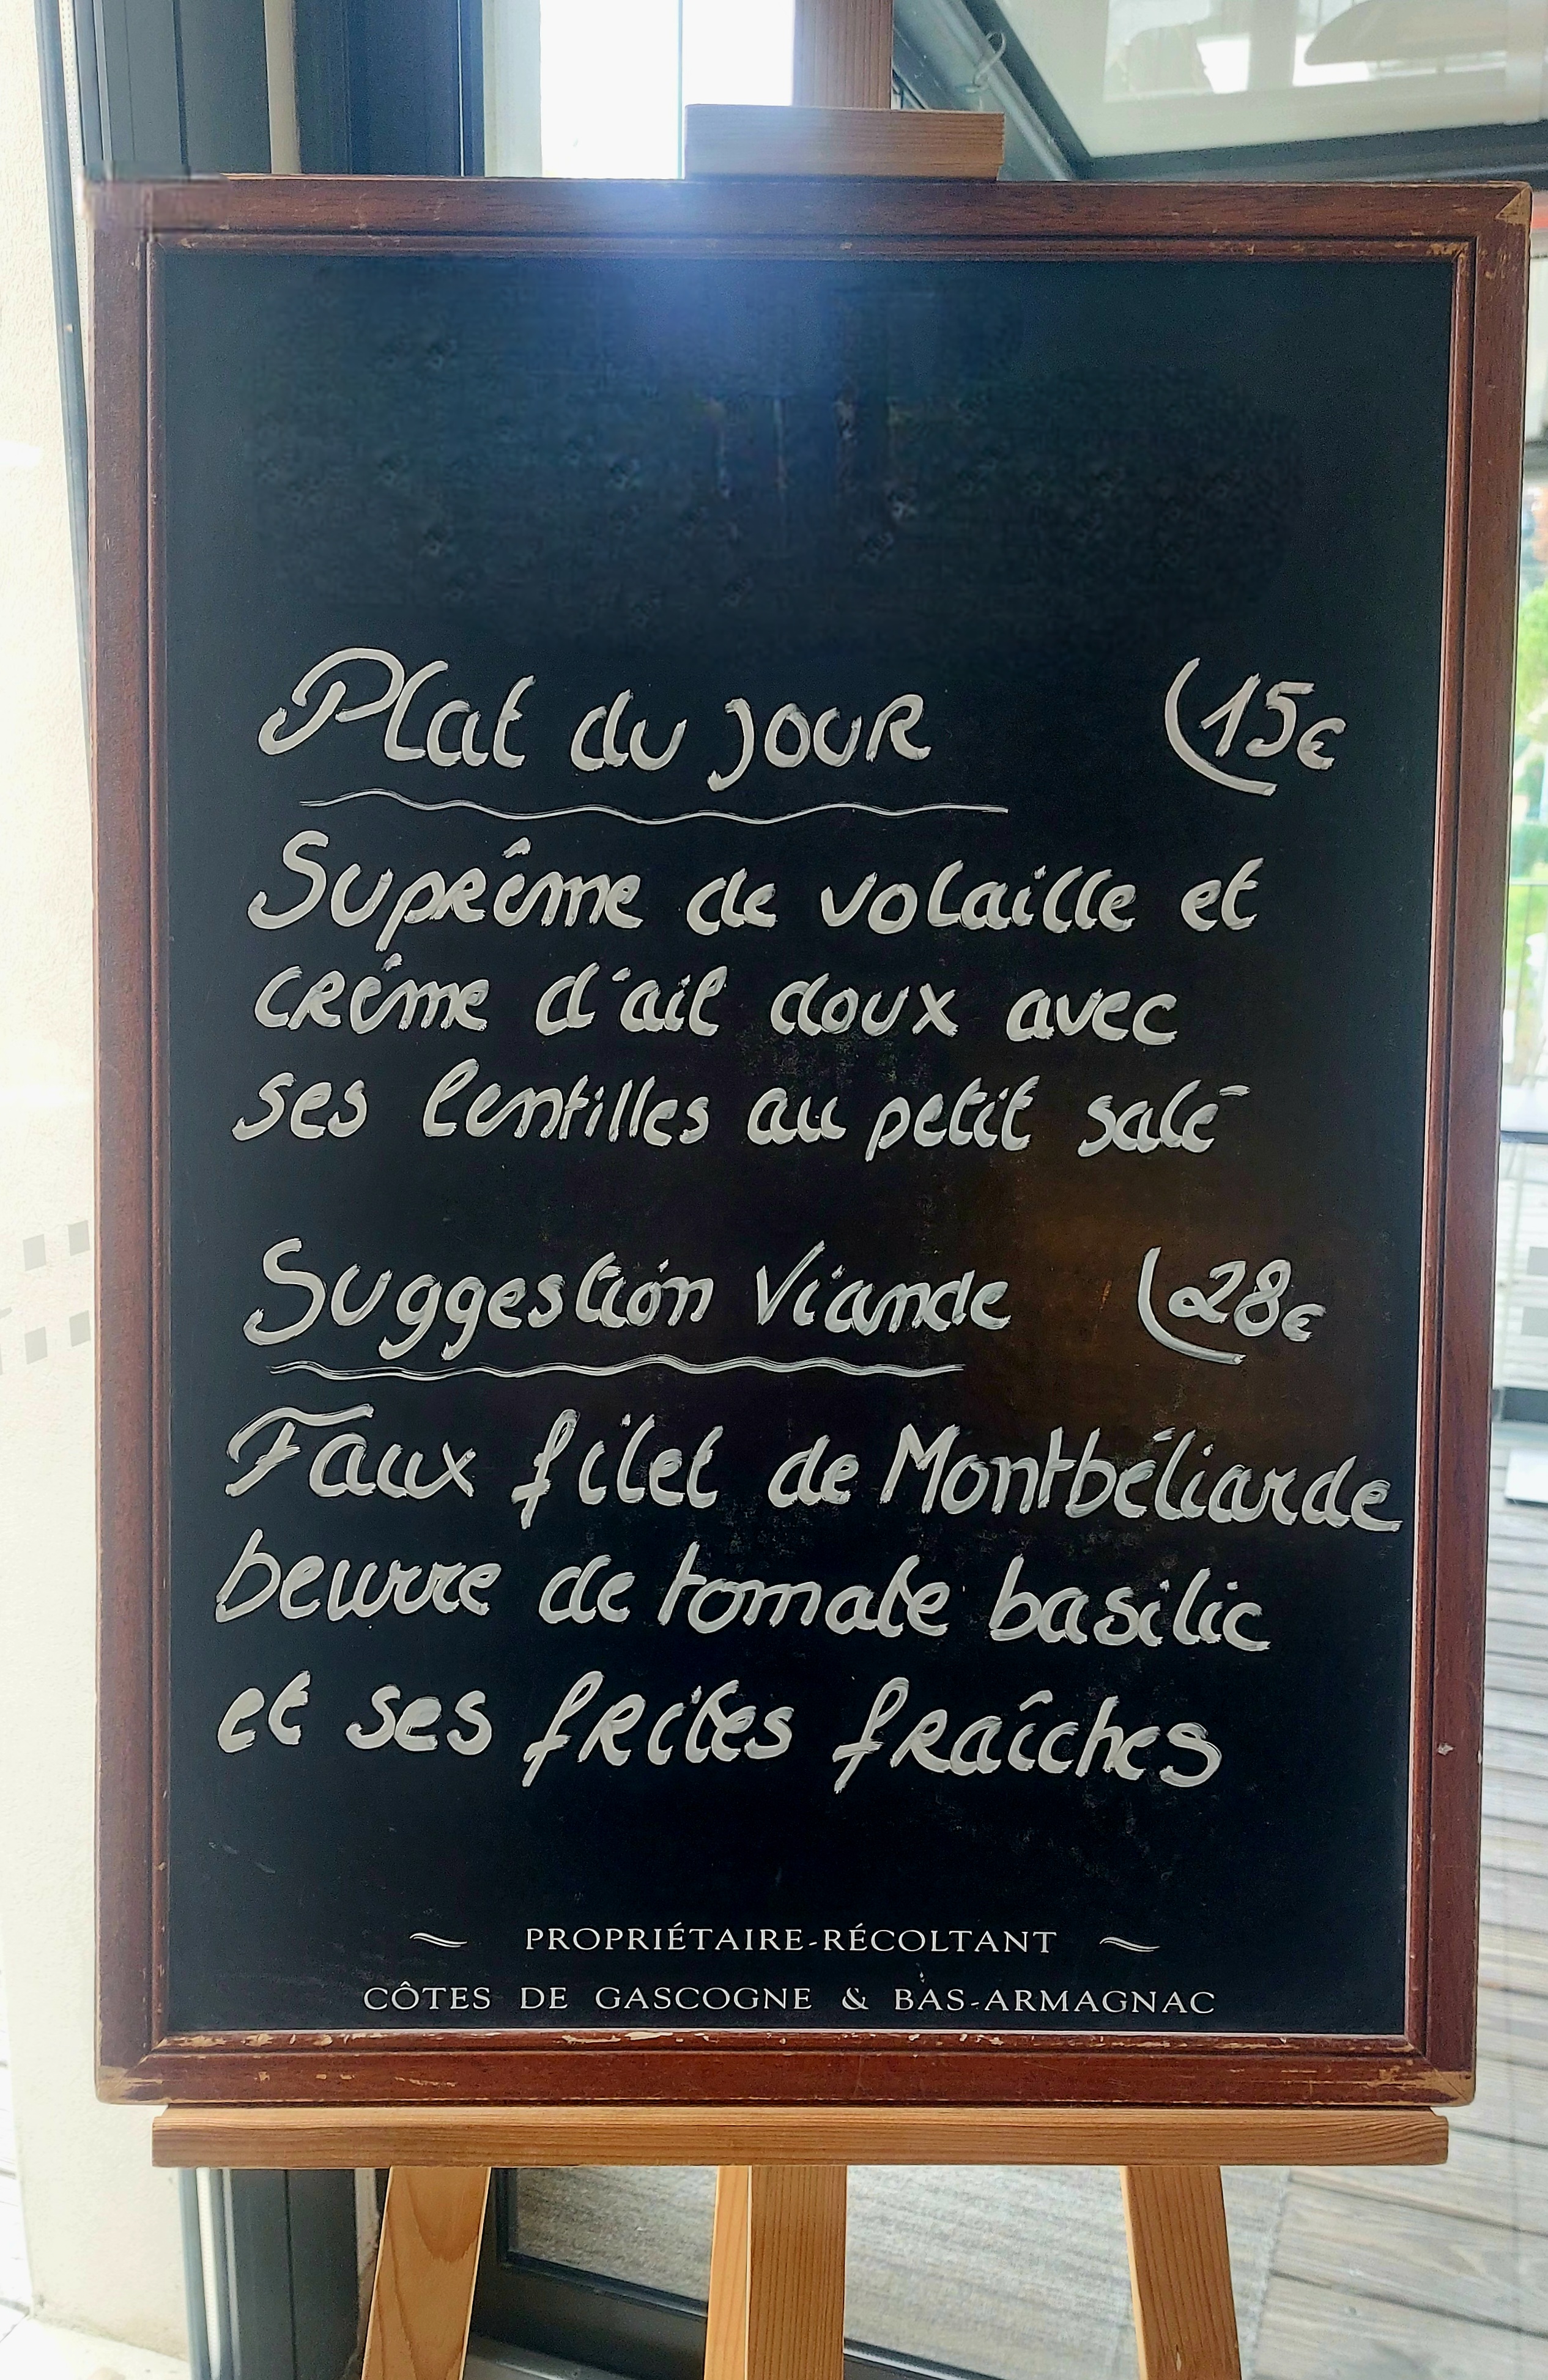 Plat du jour 15€
Suprême de volaille et
crème d'ail doux avec
ses lentilles au petit salé
Suggestion Viande 28€
Faux filet de Montbéliarde
beurre de tomate basilic
et ses frites fraîches
PROPRIÉTAIRE-RÉCOLTANT
CÔTES DE GASCOGNE & BAS-ARMAGNAC